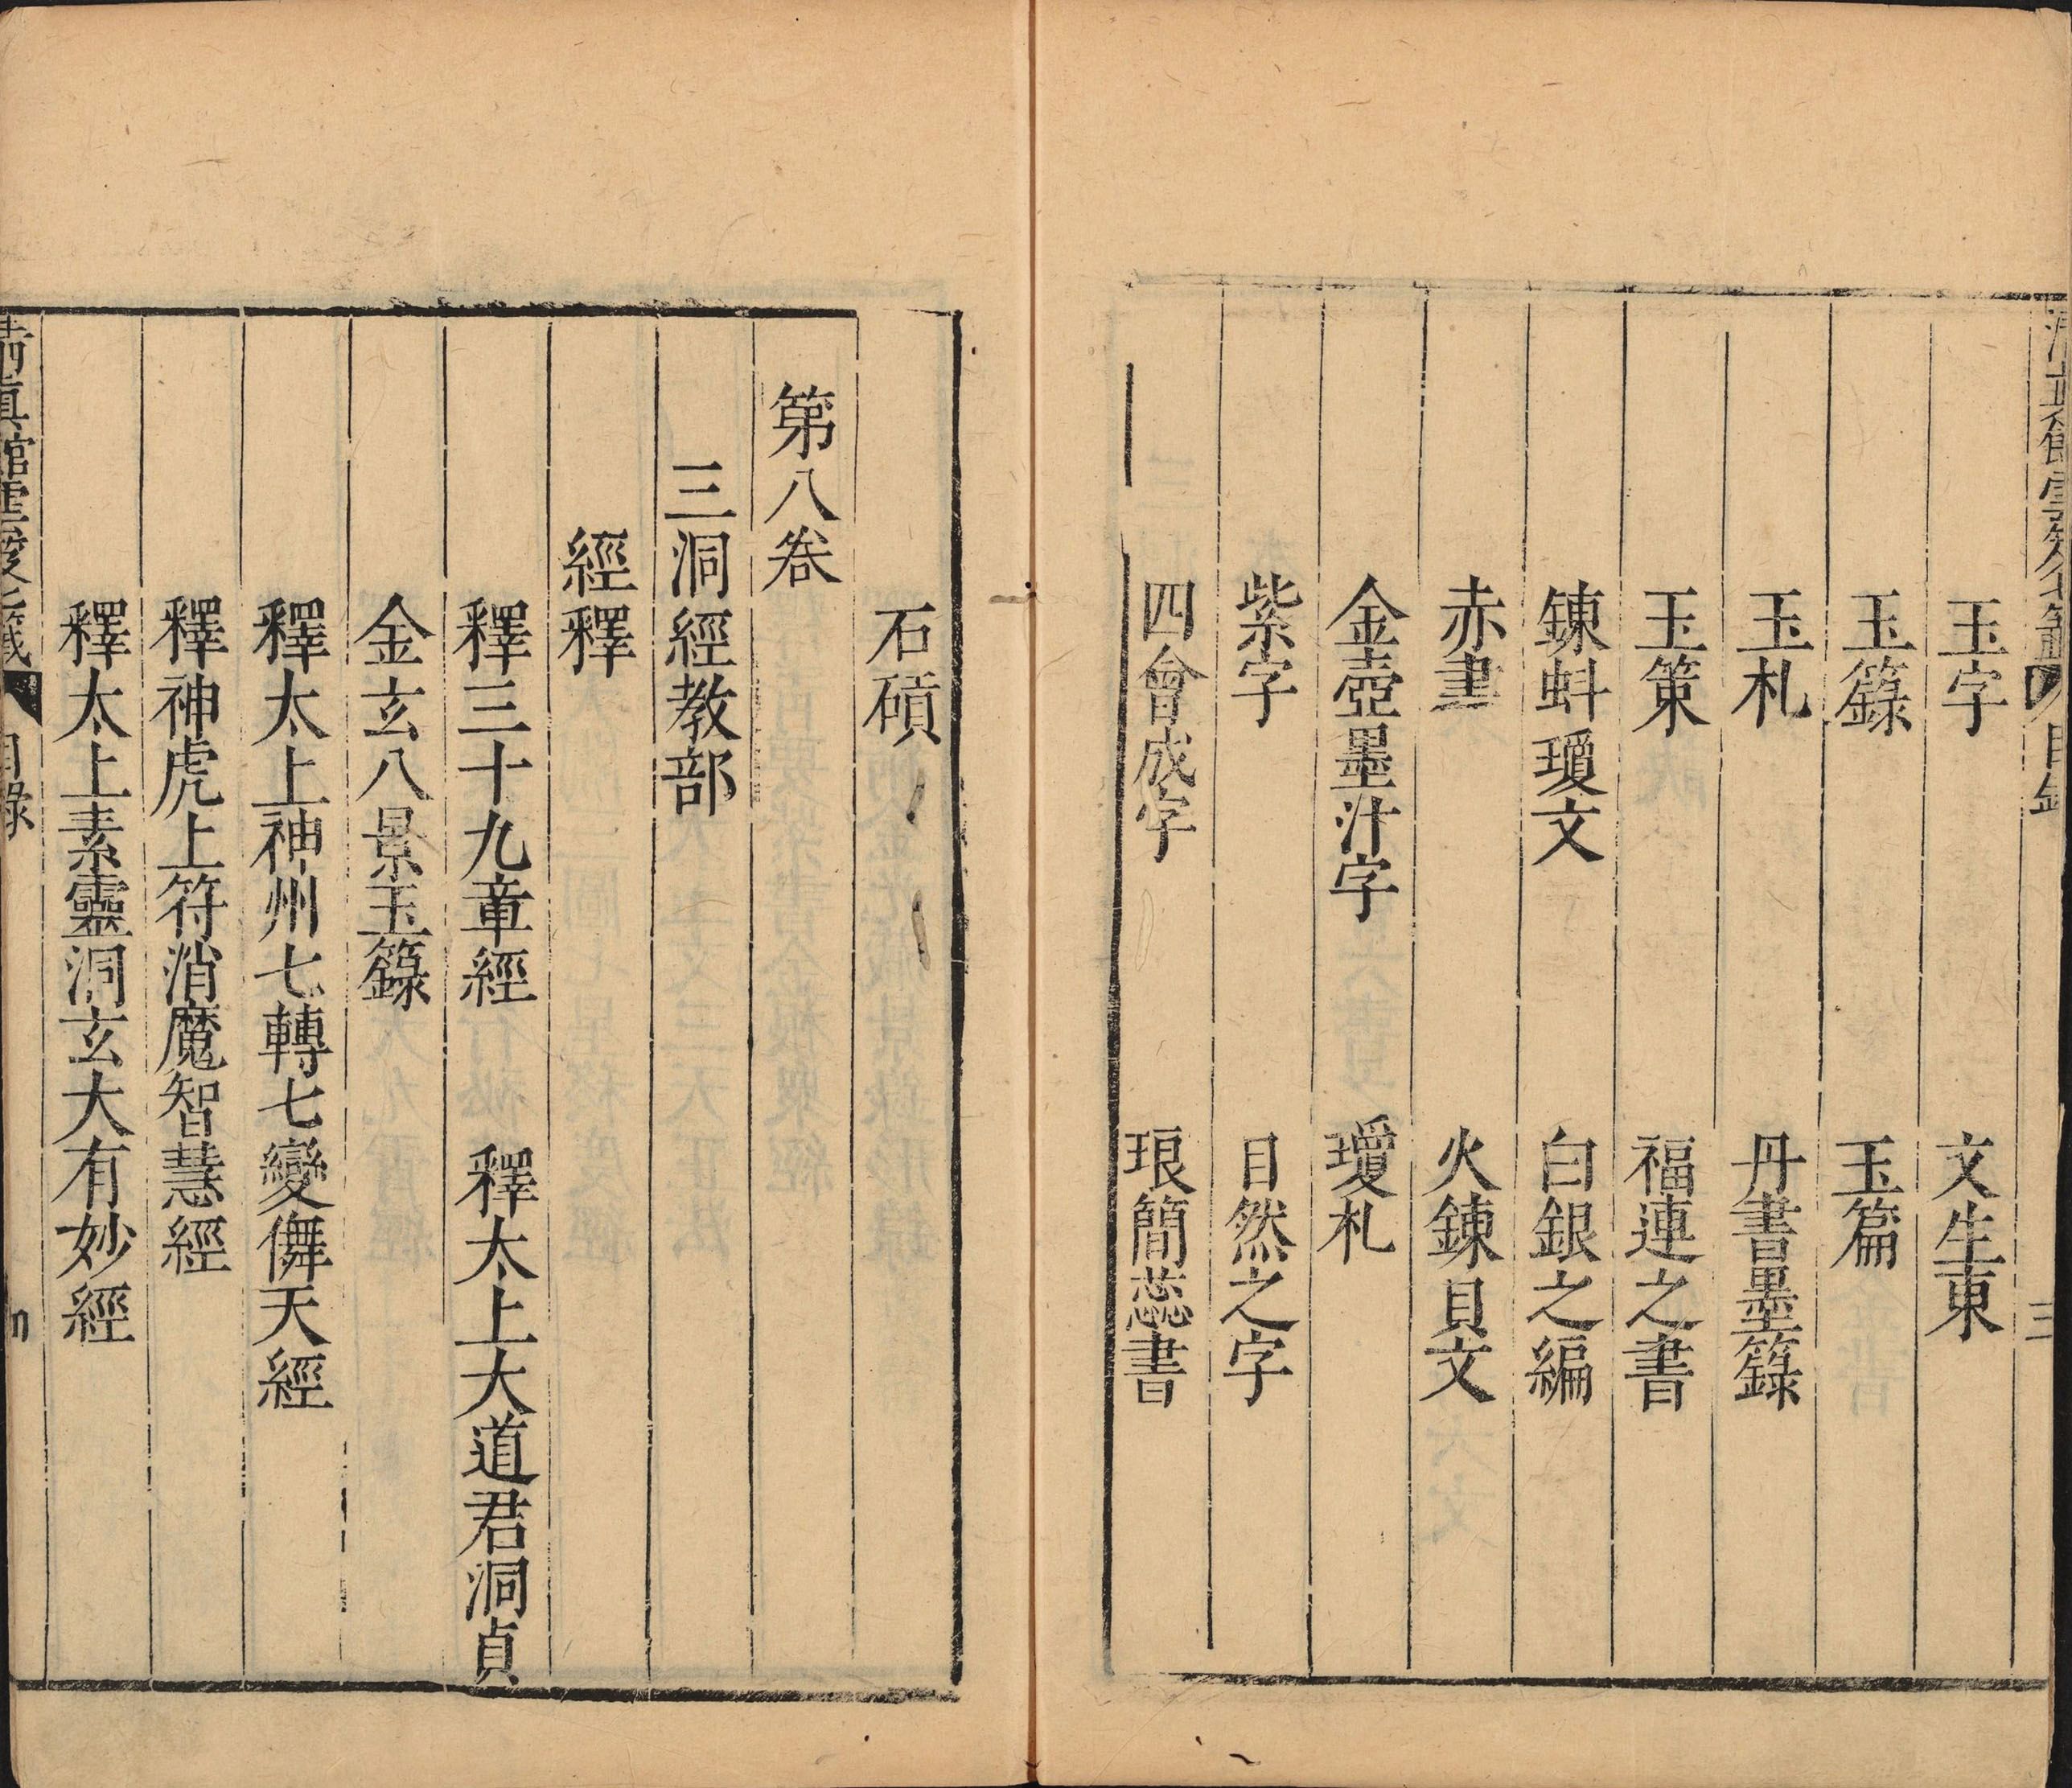 玉字　文生東
玉籙　玉篇
玉札　丹書墨籙
玉策　福連之書
錬蚪瓊文　白銀之編
赤書　火錬貝文
金壺墨汁字　瓊札
紫字　目然之字
四會成字　琅簡蕊書
石碩
第八卷
三洞經教部
經釋
釋三十九章經　釋太上大道君洞貞
金玄八景玉籙
釋太上神州七轉七變儛天經
釋神虎上符消魔智慧經
釋太上素靈洞玄大有妙經
目錄